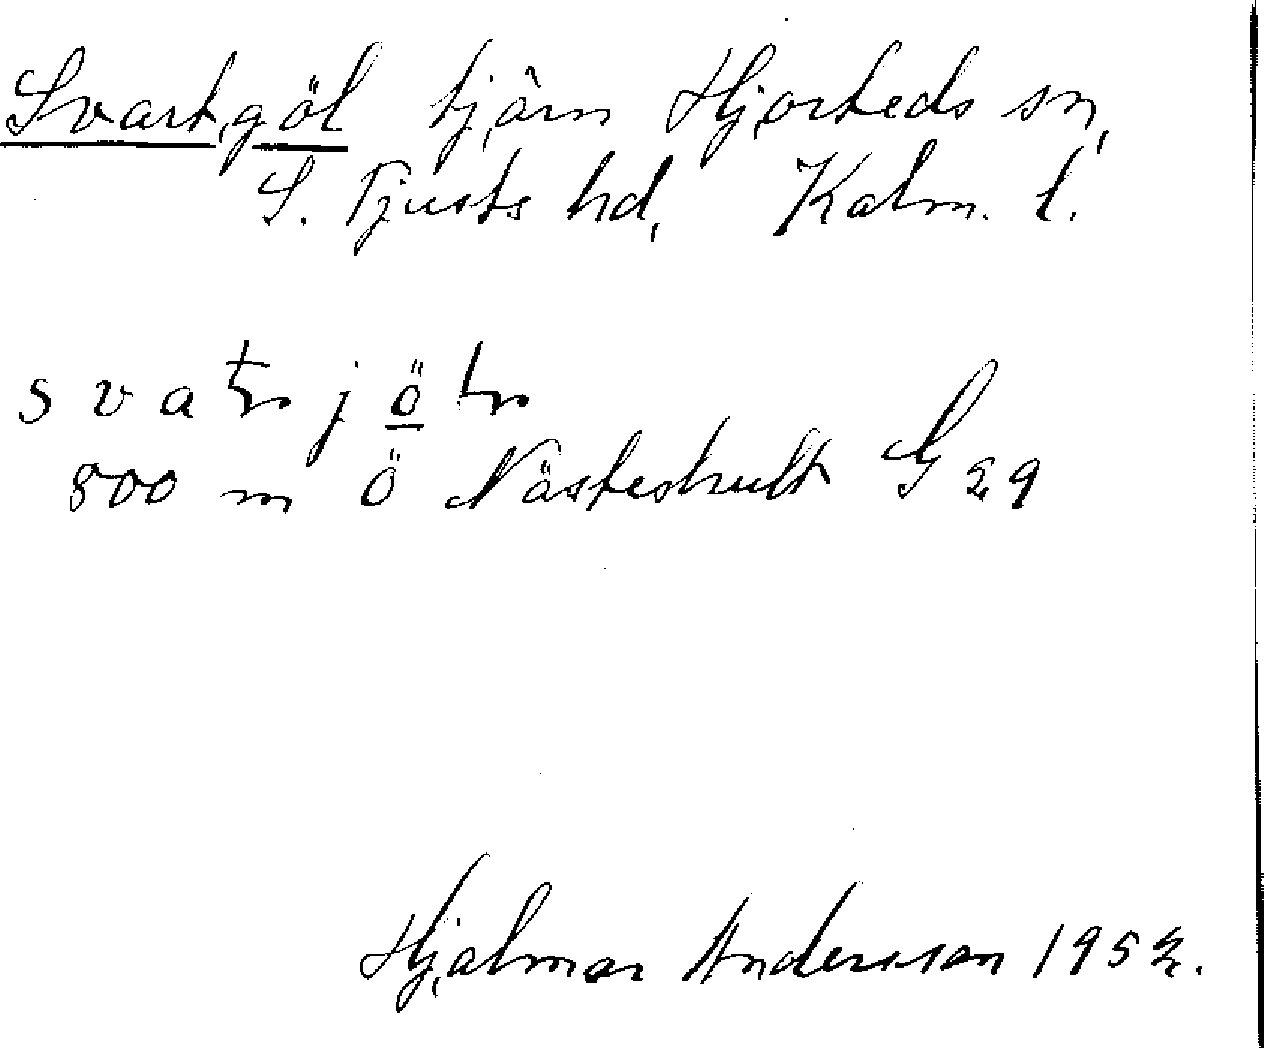 Svartgöl tjärn Hjorteds sn,
S. Tjusts hd, Kalm. l.
svatjöl
800 m Ö Nästeshult G 29
Hjalmar Andersson 1952.